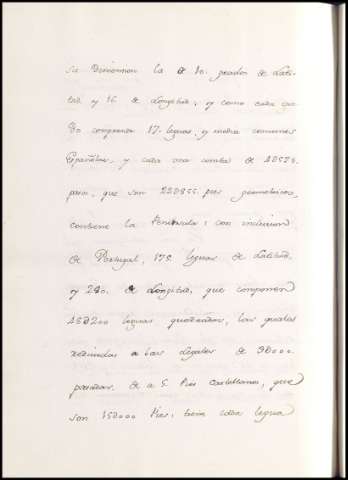 su Dimension la de 10. grados de Lati-
tud y 16 de Longitud, y como cada gra-
do comprende 17. leguas, y media comunes
Españolas, y cada una consta de
pasos, que son pies geometricos,
contiene la Peninsula: con inclusion
de Portugal, 175. leguas de Latitud,
y 280. de Longitud, que componen
leguas quadradas, las quales
reducidas a las legales de
de a 5. Pies Castellanos, que
son 15000 Pies; tiene cada legua